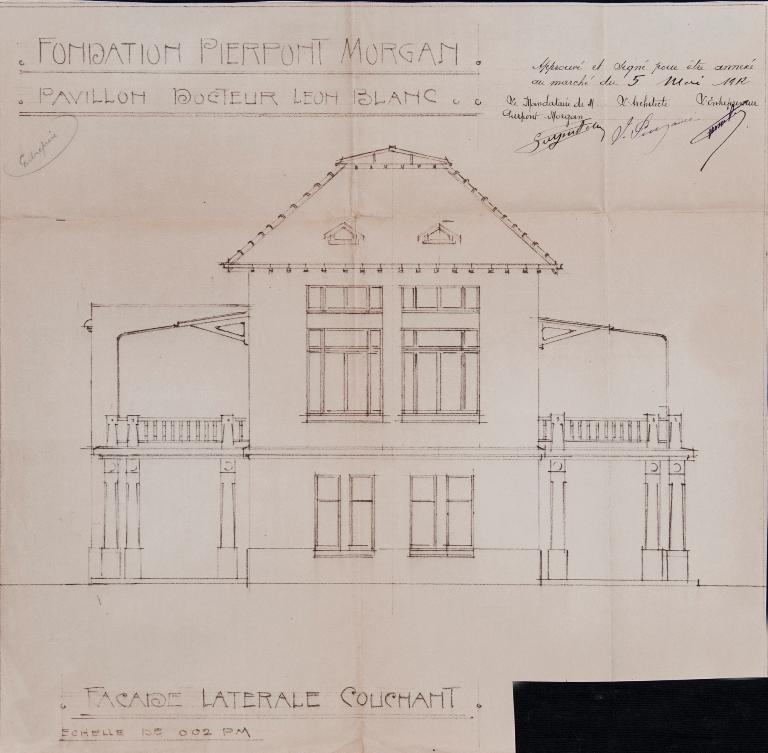 FONDATION PIERPONT MORGAN
PAVILLON DOCTEUR LEON BLANC
Approuvé et signé pour être annexé
au marché du 5 Mai 1912
Le Mandataire de M L'Architecte L'Entrepreneur
Pierpont-Morgan
FACADE LATERALE COUCHANT
ECHELLE DE 002 PM